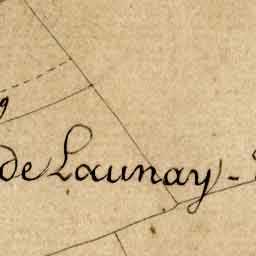 de Launay -